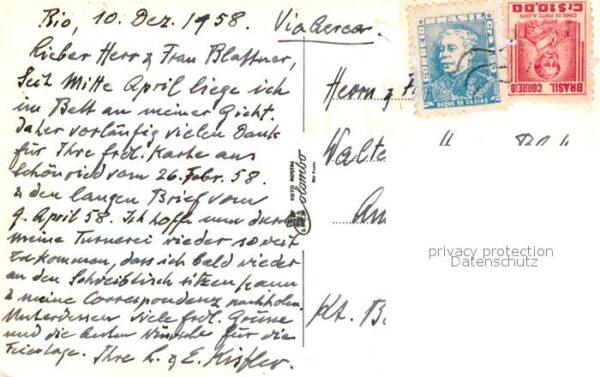 Rio, 10. Dez. 1958. Via Aerea.
Lieber Herr & Frau Blattner,
Seit Mitte April liege ich
im Bett an meiner Gicht.
Daher vorläufig vielen Dank
für Ihre frdl. Karte aus
Schönried vom 26. Febr. 58.
& den langen Brief vom
9. April 58. Ich hoffe nun durch
meine Turnerei wieder so weit
zu kommen, dass ich bald wieder
an den Schreibtisch sitzen kann
& meine Correspondenz nachholen.
Unterdessen viele frdl. Grüsse
und die besten Wünsche für die
Feiertage. Ihre
FOTO POSTAL
Colombo
São Paulo
Herrn & F
Walte
Am
Kt. B
BRASIL CORREIO
CONDE DE PORTO ALEGRE
Cr$10,00
DUQUE DE CAXIAS
privacy protection
Datenschutz